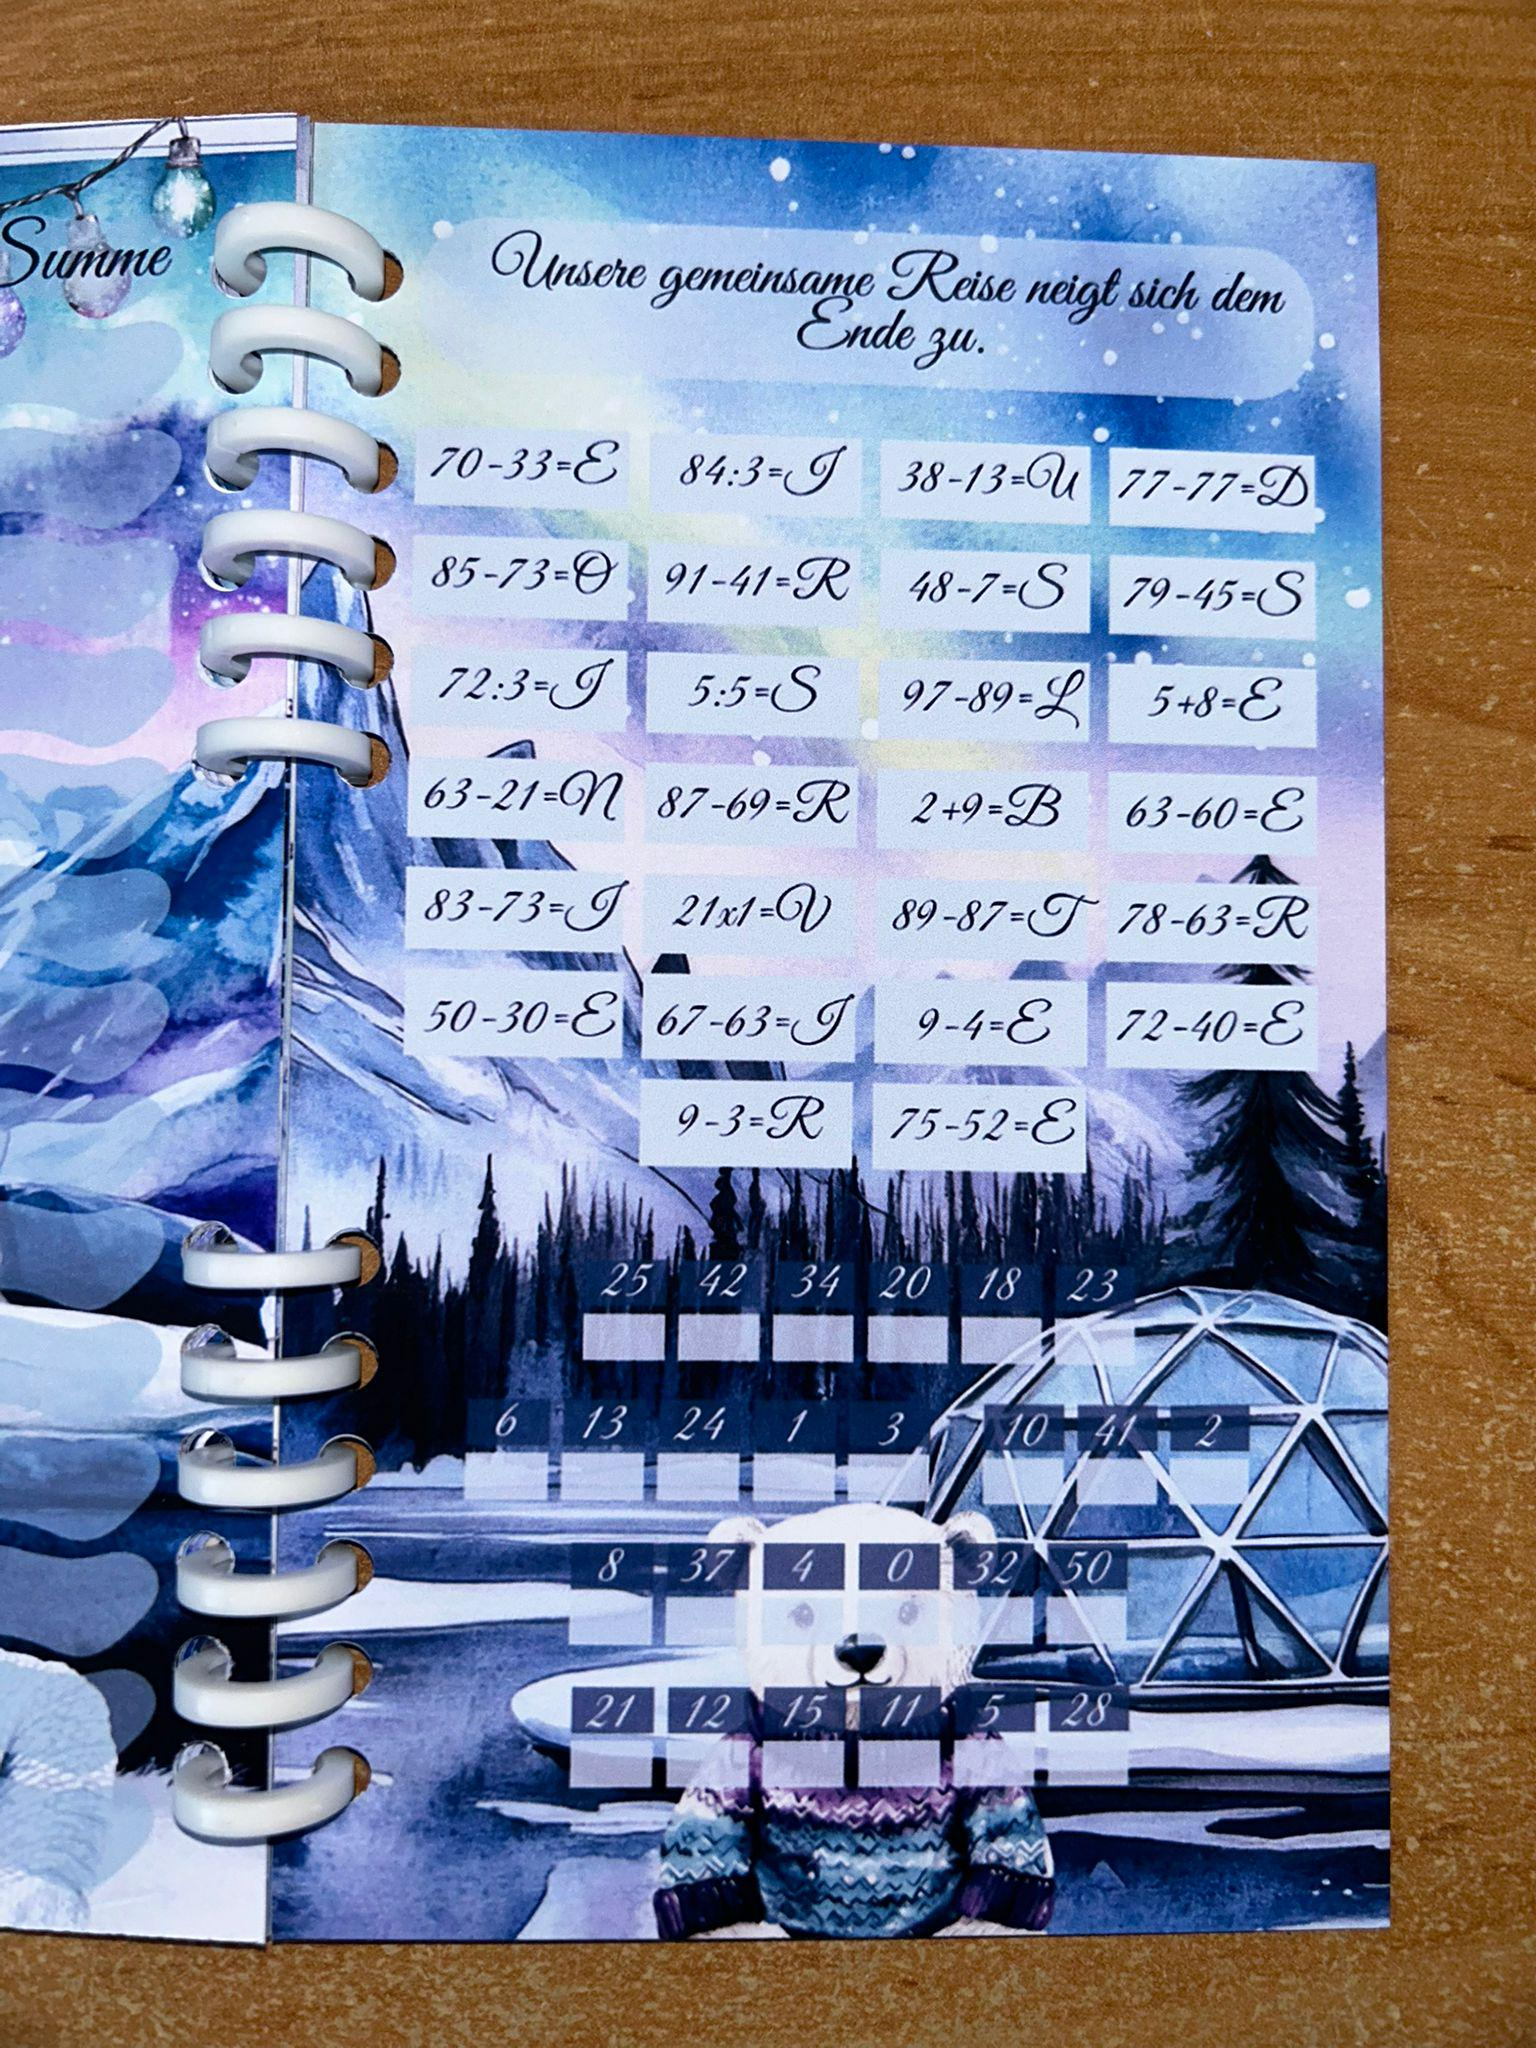 Summe
Unsere gemeinsame Reise neigt sich dem
Ende zu.
70-33=E 84:3=I 38-13=U 77-77=D
85-73=O 91-41=R 48-7=S 79-45=S
72:3=I 5:5=S 97-89=L 5+8=E
63-21=N 87-69=R 2+9=B 63-60=E
83-73=I 21x1=V 89-87=T 78-63=R
50-30=E 67-63=I 9-4=E 72-40=E
9-3=R 75-52=E
25 42 34 20 18 23
6 13 24 1 3 10 41 2
8 37 4 0 32 50
21 12 15 11 5 28